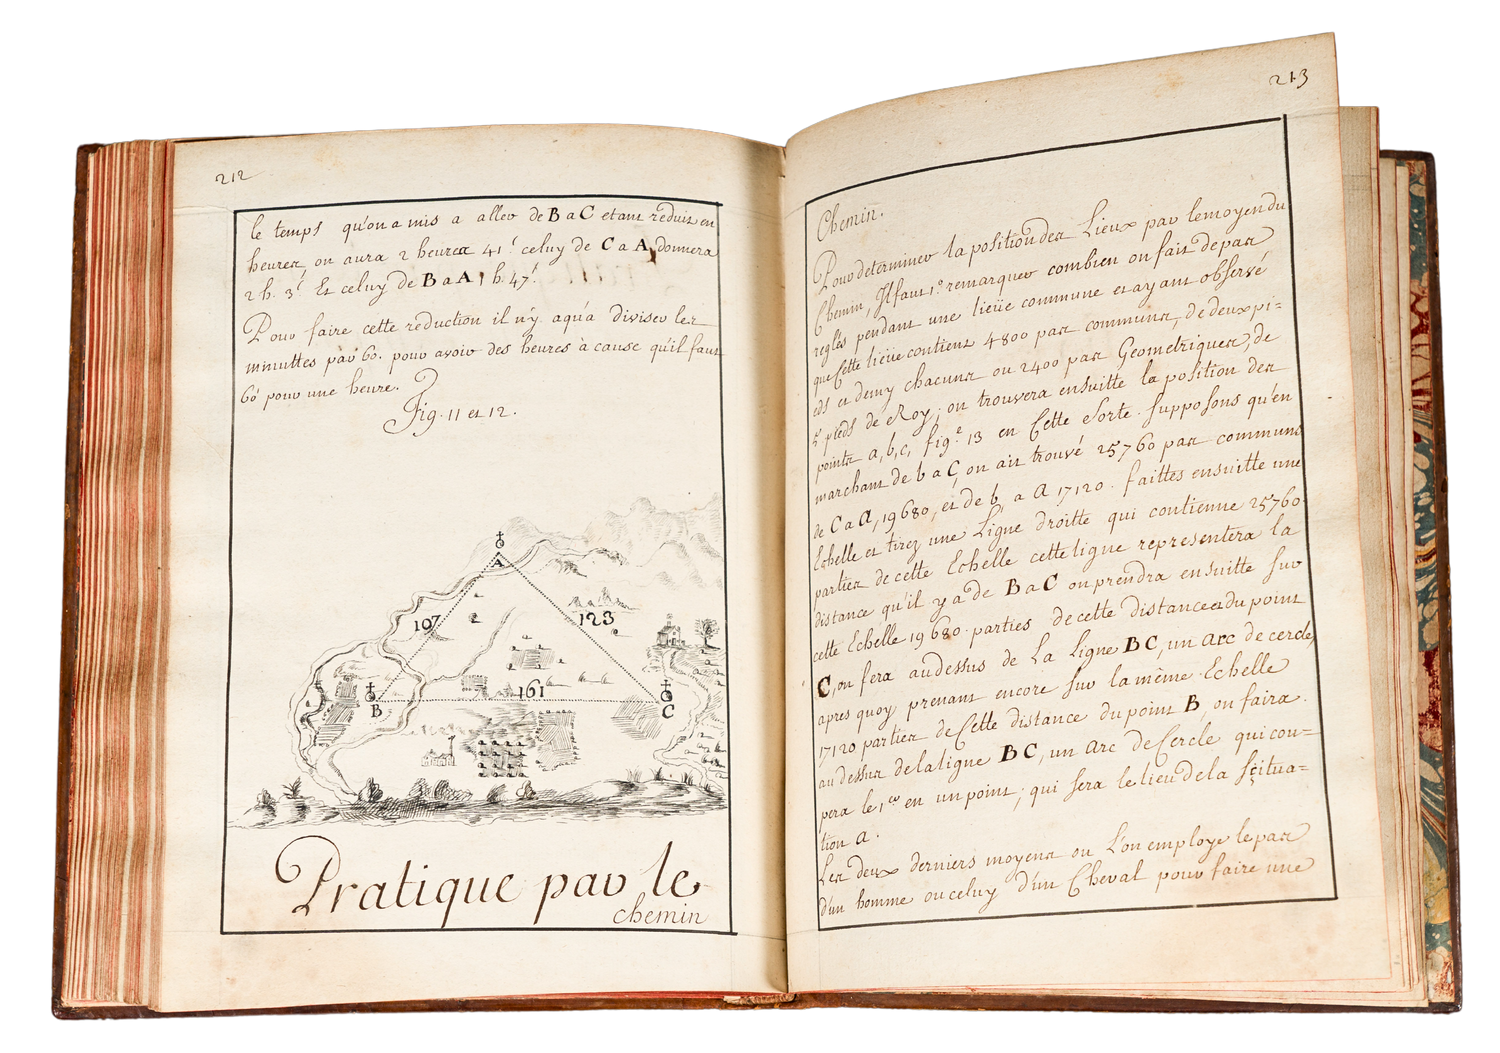 212
le temps qu'on a mis a aller de B a C etant reduit en
heures, on aura 2 heures 41' celuy de C a A, donnera
2 h. 3' Et celuy de B a A 1 h. 47'.
Pour faire cette reduction il n'y a qu'a diviser les
minuttes par 60. pour avoir des heures à cause qu'il faut
60 pour une heure.
Fig. 11 et 12.
A
107
123
161
B
C
Pratique par le
chemin
213
Chemin.
Pour determiner la position des Lieux par le moyen du
Chemin, Il faut 1.° remarquer combien on fait de pas
reglés pendant une lieüe commune et ayant observé
que Cette lieüe contient 4800 pas communs, de deux pi=
eds et demy chacuns ou 2400 pas Geometriques, de
5 pieds de Roy; on trouvera ensuitte la position des
points a, b, c, fig.e 13 en Cette Sorte. Supposons qu'en
marchant de b a C, on ait trouvé 25760 pas communs
de C a A, 19680, et de b a A 17120. faittes ensuitte une
Echelle et tirez une Ligne droitte qui contienne 25760.
parties de cette Echelle cette ligne representera la
distance qu'il y a de B a C on prendra ensuitte sur
cette Echelle 19680. parties de cette distance et du point
C, on fera au dessus de La Ligne BC, un arc de cercle,
apres quoy prenant encore sur la même Echelle
17120 parties de Cette distance du point B, on faira.
au dessus de la ligne BC, un Arc de Cercle qui cou=
pera le 1.er en un point, qui sera le lieu de la sçitua=
tion A.
Les deux derniers moyens ou L'on employe le pas
d'un homme ou celuy d'un Cheval pour faire une